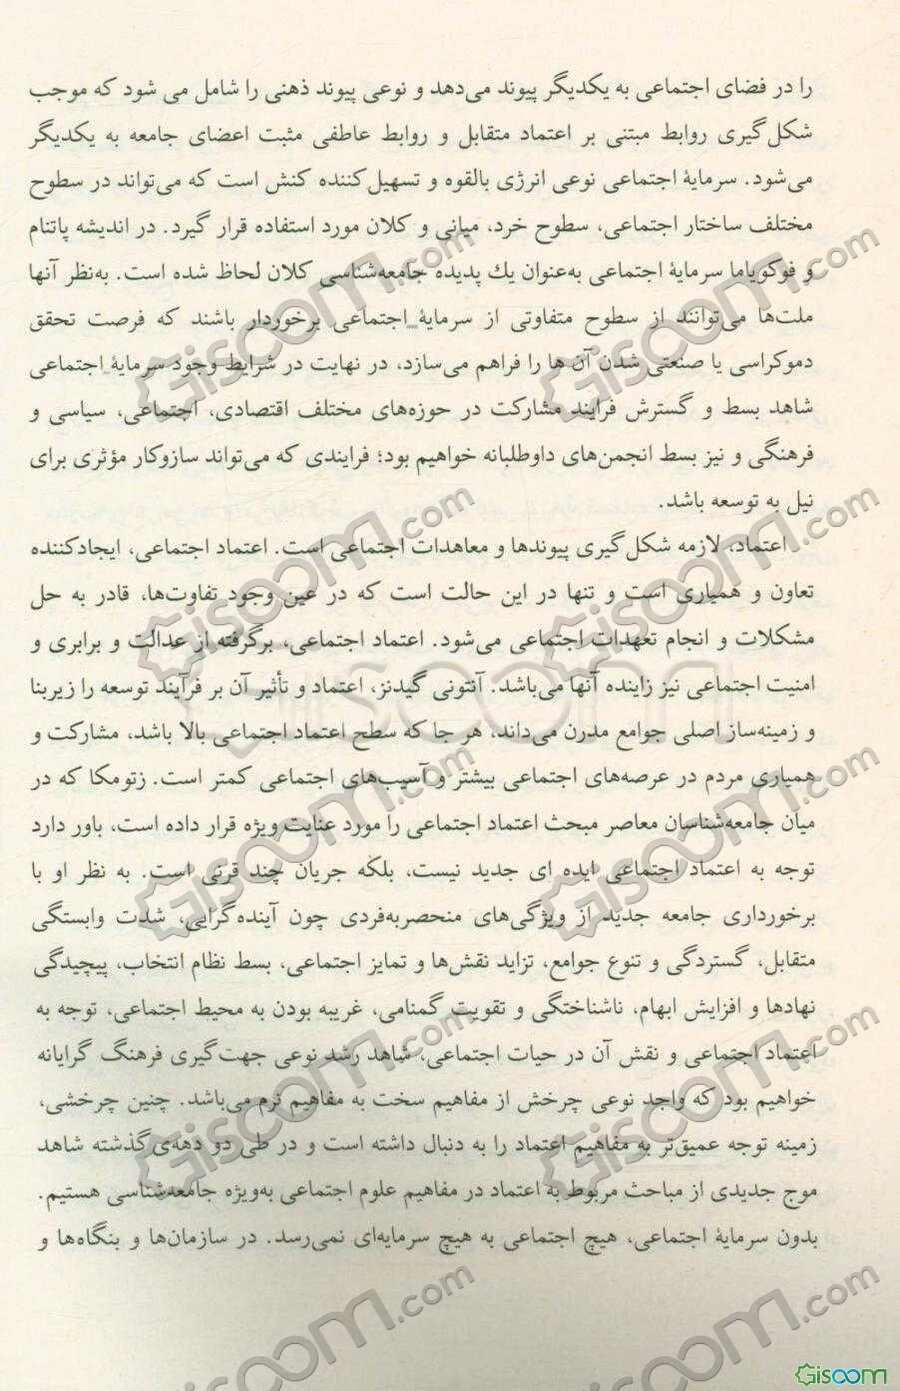 را در فضای اجتماعی به یکدیگر پیوند می‌دهد و نوعی پیوند ذهنی را شامل می شود که موجب
شکل‌گیری روابط مبتنی بر اعتماد متقابل و روابط عاطفی مثبت اعضای جامعه به یکدیگر
می‌شود. سرمایهٔ اجتماعی نوعی انرژی بالقوه و تسهیل‌کننده کنش است که می‌تواند در سطوح
مختلف ساختار اجتماعی، سطوح خرد، میانی و کلان مورد استفاده قرار گیرد. در اندیشه پاتنام
و فوکویاما سرمایهٔ اجتماعی به‌عنوان یك پدیده جامعه‌شناسی کلان لحاظ شده است. به‌نظر آنها
ملت‌ها می‌توانند از سطوح متفاوتی از سرمایهٔ اجتماعی برخوردار باشند که فرصت تحقق
دموکراسی یا صنعتی شدن آن ها را فراهم می‌سازد، در نهایت در شرایط وجود سرمایهٔ اجتماعی
شاهد بسط و گسترش فرایند مشارکت در حوزه‌های مختلف اقتصادی، اجتماعی، سیاسی و
فرهنگی و نیز بسط انجمن‌های داوطلبانه خواهیم بود؛ فرایندی که می‌تواند سازوکار مؤثری برای
نیل به توسعه باشد.
اعتماد، لازمه شکل‌گیری پیوندها و معاهدات اجتماعی است. اعتماد اجتماعی، ایجادکننده
تعاون و همیاری است و تنها در این حالت است که در عین وجود تفاوت‌ها، قادر به حل
مشکلات و انجام تعهدات اجتماعی می‌شود. اعتماد اجتماعی، برگرفته از عدالت و برابری و
امنیت اجتماعی نیز زاینده آنها می‌باشد. آنتونی گیدنز، اعتماد و تأثیر آن بر فرآیند توسعه را زیربنا
و زمینه‌ساز اصلی جوامع مدرن می‌داند، هر جا که سطح اعتماد اجتماعی بالا باشد، مشارکت و
همیاری مردم در عرصه‌های اجتماعی بیشتر و آسیب‌های اجتماعی کمتر است. زتومکا که در
میان جامعه‌شناسان معاصر مبحث اعتماد اجتماعی را مورد عنایت ویژه قرار داده است، باور دارد
توجه به اعتماد اجتماعی ایده ای جدید نیست، بلکه جریان چند قرنی است. به نظر او با
برخورداری جامعه جدید از ویژگی‌های منحصربه‌فردی چون آینده‌گرایی، شدت وابستگی
متقابل، گستردگی و تنوع جوامع، تزاید نقش‌ها و تمایز اجتماعی، بسط نظام انتخاب، پیچیدگی
نهادها و افزایش ابهام، ناشناختگی و تقویت گمنامی، غریبه بودن به محیط اجتماعی، توجه به
اعتماد اجتماعی و نقش آن در حیات اجتماعی، شاهد رشد نوعی جهت‌گیری فرهنگ گرایانه
خواهیم بود که واجد نوعی چرخش از مفاهیم سخت به مفاهیم نرم می‌باشد. چنین چرخشی،
زمینه توجه عمیق‌تر به مفاهیم اعتماد را به دنبال داشته است و در طی دو دهه‌ی گذشته شاهد
موج جدیدی از مباحث مربوط به اعتماد در مفاهیم علوم اجتماعی به‌ویژه جامعه‌شناسی هستیم.
بدون سرمایهٔ اجتماعی، هیچ اجتماعی به هیچ سرمایه‌ای نمی‌رسد. در سازمان‌ها و بنگاه‌ها و
Gisoom